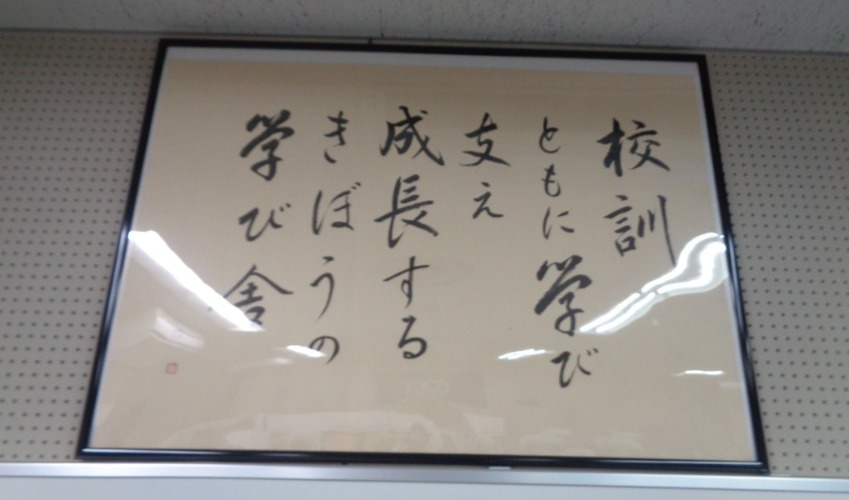 校訓
ともに学び
支え
成長する
きぼうの
学び舎